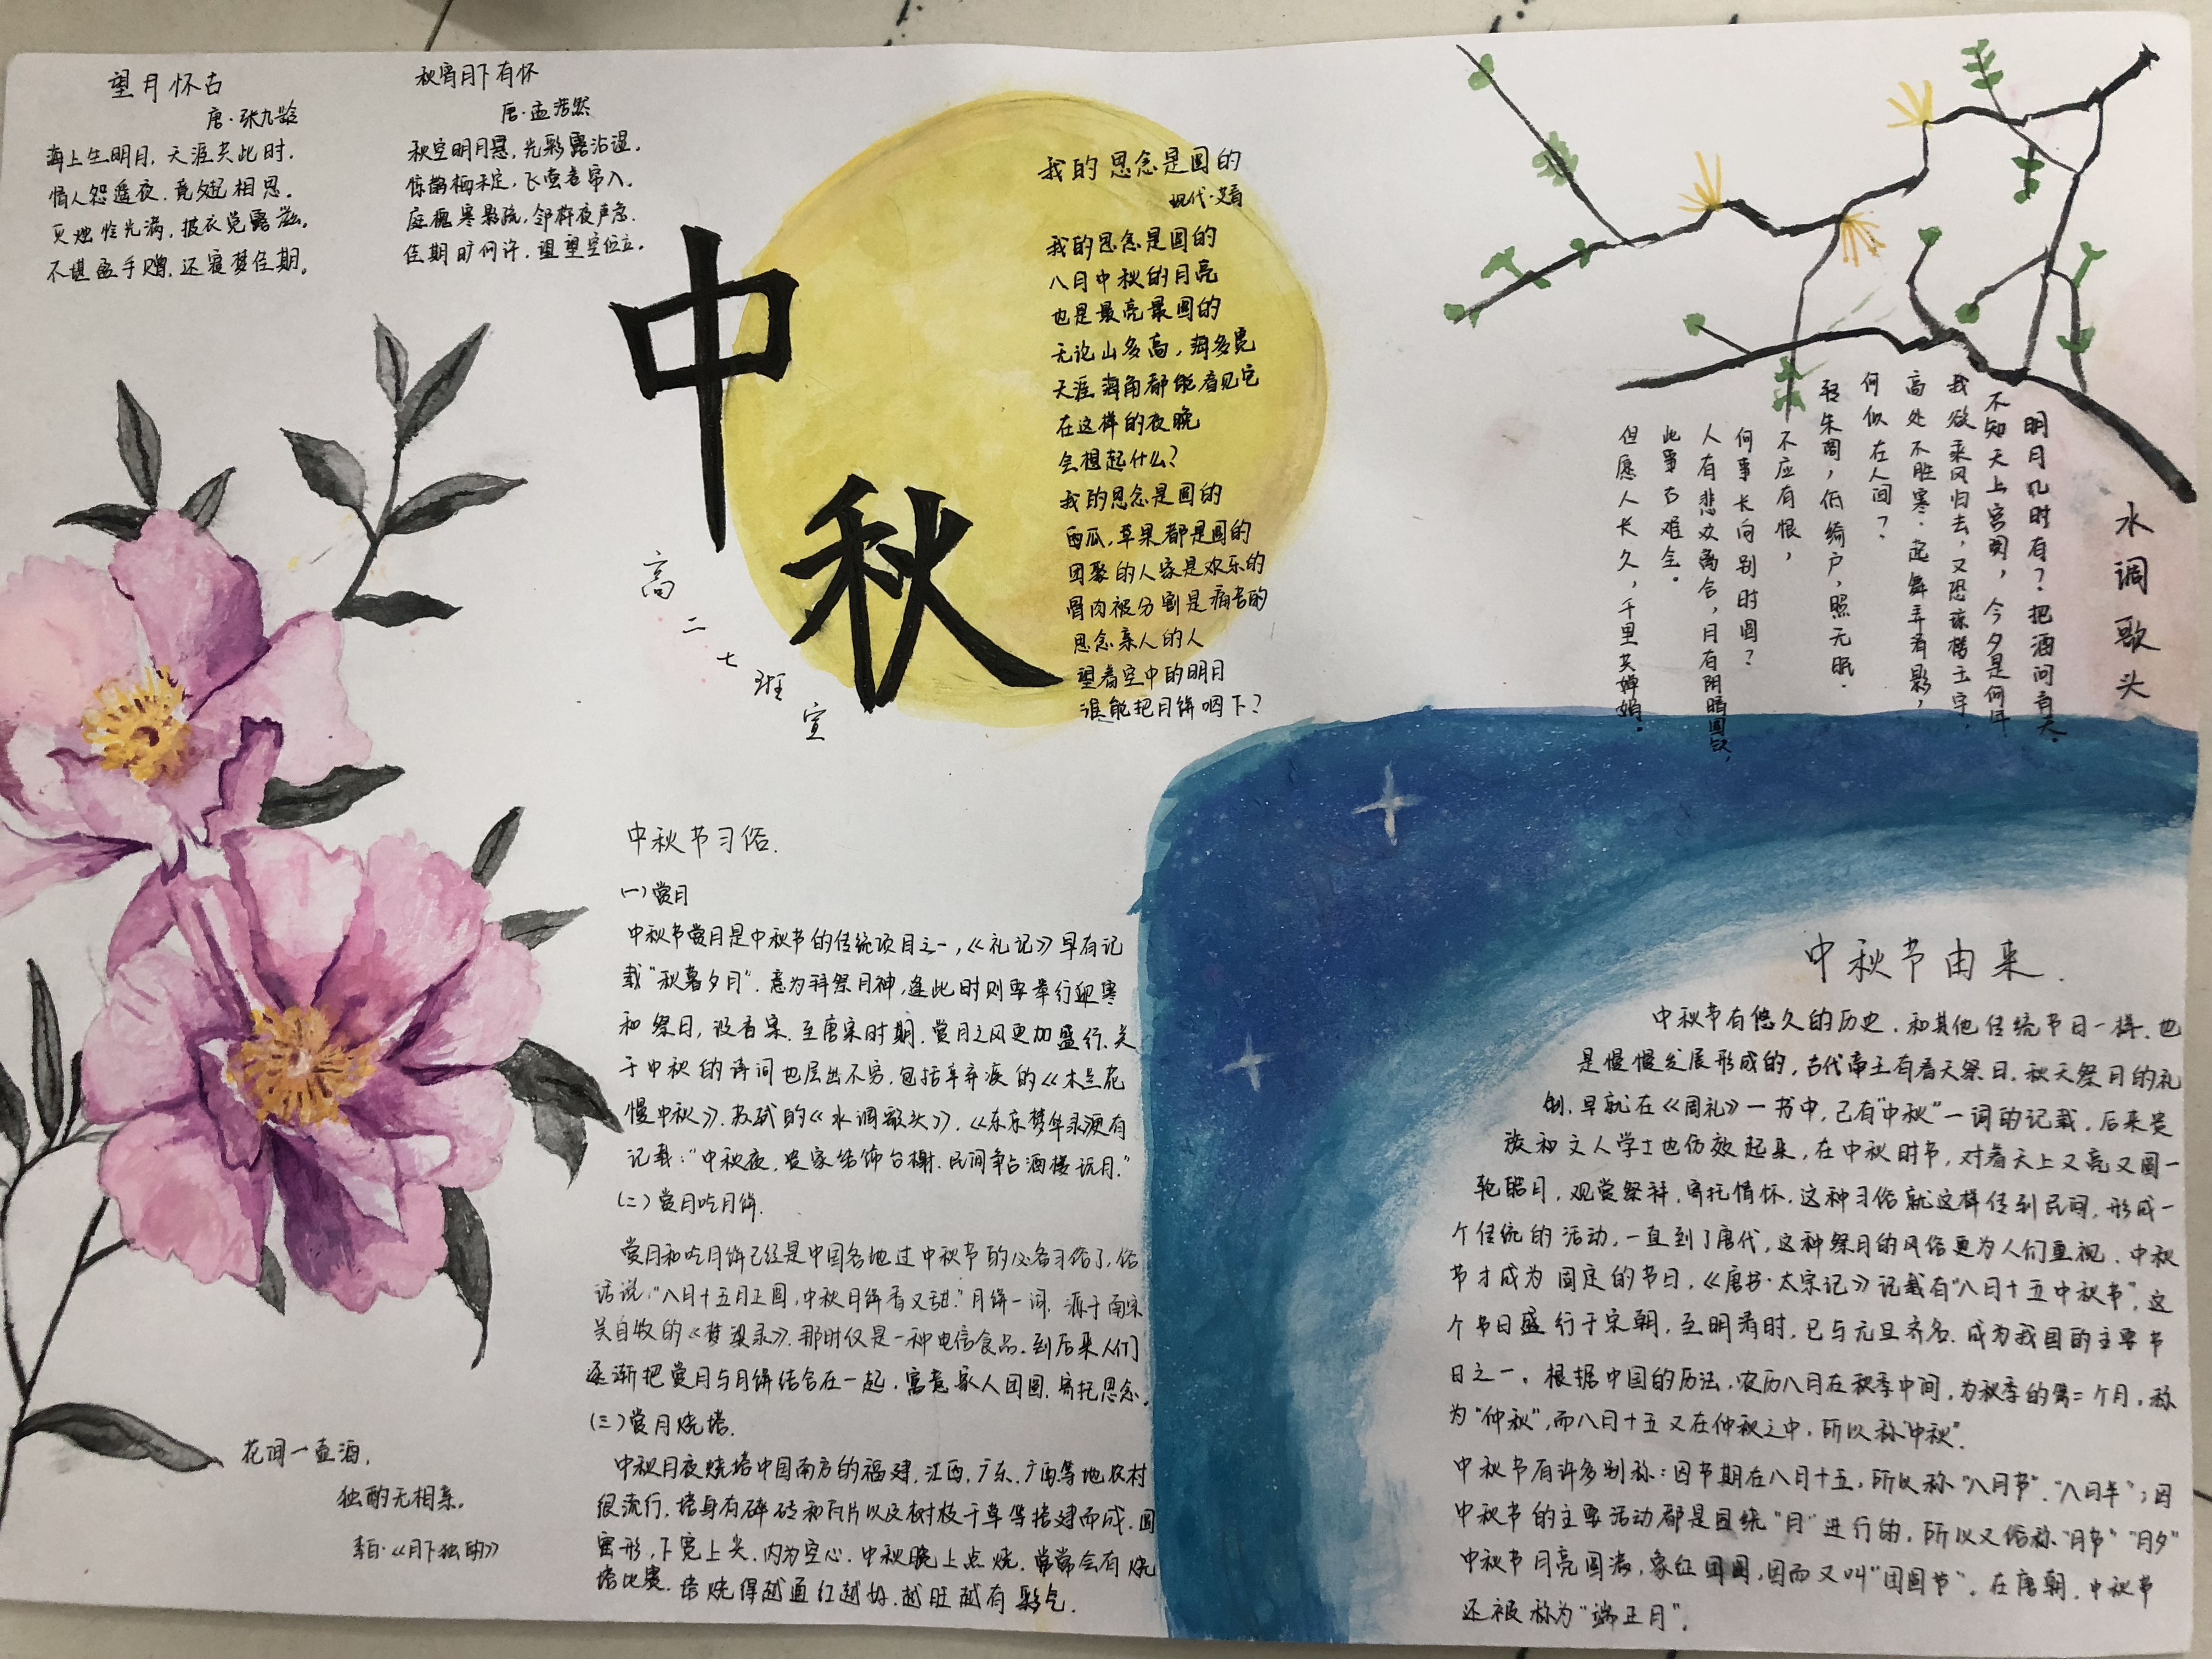 望月怀古
唐·张九龄
海上生明月，天涯共此时．
情人怨遥夜．竟夕起相思．
灭烛怜光满，披衣觉露滋．
不堪盈手赠．还寝梦佳期．
秋宵月下有怀
唐·孟浩然
秋空明月悬，光彩露沾湿．
惊鹊栖未定，飞萤卷帘入．
庭槐寒影疏，邻杵夜声急．
佳期旷何许，望望空伫立．
中
秋
高二七班宣
我的思念是圆的
现代·艾青
我的思念是圆的
八月中秋的月亮
也是最亮最圆的
无论山多高，海多宽
天涯海角都能看见它
在这样的夜晚
会想起什么？
我的思念是圆的
西瓜，苹果都是圆的
团聚的人家是欢乐的
骨肉被分割是痛苦的
思念亲人的人
望着空中的明月
谁能把月饼咽下？
水调歌头
明月几时有？把酒问青天．
不知天上宫阙，今夕是何年
我欲乘风归去，又恐琼楼玉宇，
高处不胜寒．起舞弄清影，
何似在人间？
转朱阁，低绮户，照无眠．
不应有恨，
何事长向别时圆？
人有悲欢离合，月有阴晴圆缺，
此事古难全．
但愿人长久，千里共婵娟．
中秋节习俗．
(一)赏月
中秋节赏月是中秋节的传统项目之一，《礼记》早有记
载“秋暮夕月”．意为拜祭月神，逢此时则要举行迎寒
和祭月，设香案．至唐宋时期．赏月之风更加盛行．关
于中秋的诗词也层出不穷．包括辛弃疾的《木兰花
慢中秋》．苏轼的《水调歌头》．《东京梦华录》更有
记载：“中秋夜．贵家结饰台榭．民间争占酒楼玩月．”
(二)赏月吃月饼．
赏月和吃月饼已经是中国各地过中秋节的必备习俗了，俗
话说：“八月十五月正圆，中秋月饼香又甜．”月饼一词．源于南宋
吴自牧的《梦粱录》．那时仅是一种点心食品．到后来人们
逐渐把赏月与月饼结合在一起．寓意家人团圆．寄托思念．
(三)赏月烧塔．
中秋月夜烧塔中国南方的福建．江西．广东．广西等地农村
很流行．塔身有碎砖和瓦片以及树枝干草等搭建而成．圆
窑形，下宽上尖．内为空心．中秋晚上点烧．常常会有烧
塔比赛．塔烧得越通红越好．越旺越有彩气．
中秋节由来．
中秋节有悠久的历史．和其他传统节日一样．也
是慢慢发展形成的，古代帝王有春天祭日．秋天祭月的礼
制．早就在《周礼》一书中，已有“中秋”一词的记载．后来贵
族和文人学士也仿效起来，在中秋时节，对着天上又亮又圆一
轮皓月，观赏祭拜．寄托情怀．这种习俗就这样传到民间，形成一
个传统的活动，一直到了唐代，这种祭月的风俗更为人们重视．中秋
节才成为固定的节日．《唐书·太宗记》记载有“八月十五中秋节”．这
个节日盛行于宋朝，至明清时，已与元旦齐名．成为我国的主要节
日之一．根据中国的历法，农历八月在秋季中间，为秋季的第二个月，称
为“仲秋”，而八月十五又在仲秋之中．所以称“中秋”．
中秋节有许多别称：因节期在八月十五，所以称“八月节”．“八月半”；因
中秋节的主要活动都是围绕“月”进行的．所以又俗称“月节”“月夕”
中秋节月亮圆满，象征团圆，因而又叫“团圆节”．在唐朝．中秋节
还被称为“端正月”．
花间一壶酒．
独酌无相亲．
李白·《月下独酌》